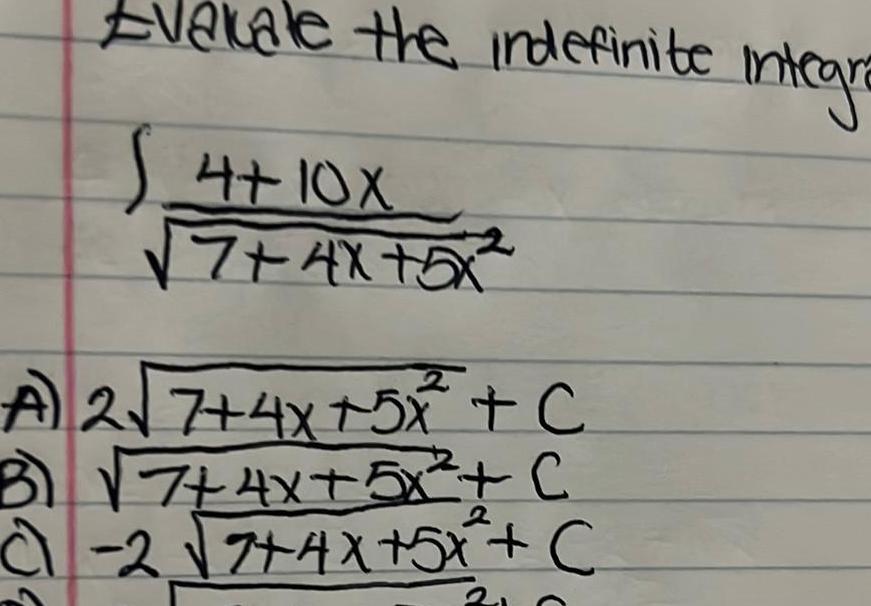 Evaluate the indefinite
∫ 4+10x
√7+4x+5x²
A) 2√7+4x+5x² + C
B) √7+4x+5x² + C
C) -2√7+4x+5x² + C